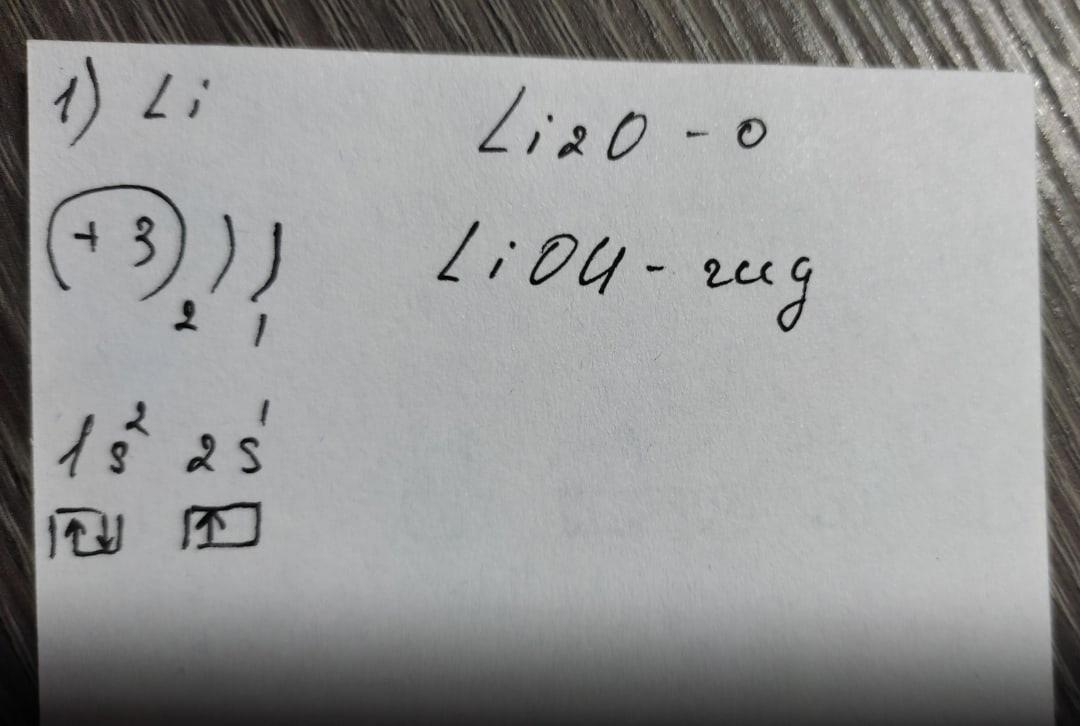 1) Li
Li2O - o
(+3) ) )
2 1
LiOH - гид
1s² 2s¹
↑↓ ↑